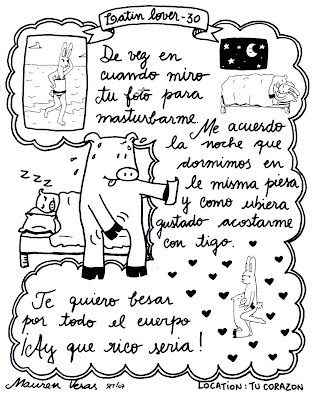 Latin lover - 30
De vez en
cuando miro
tu foto para
masturbarme.
Me acuerdo
la noche que
dormimos en
le misma piesa
y como ubiera
gustado acostarme
con tigo.
zzz
Te quiero besar
por todo el cuerpo
¡Ay que rico seria!
Mauren Veras
SET/07
LOCATION: TU CORAZON